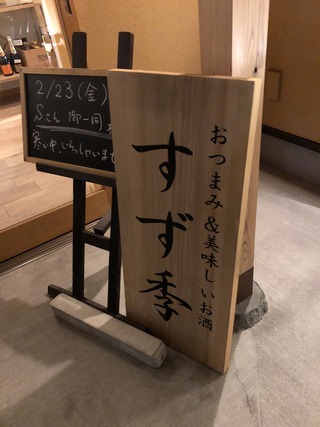 2/23(金)
Sさん 御一同
寒い中、いらっしゃいま
おつまみ&美味しいお酒
すず季